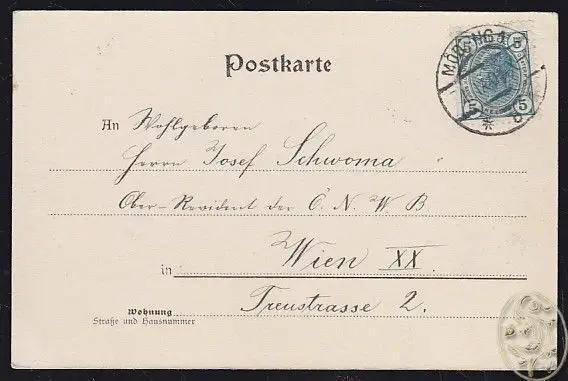 5 5
MÖDLING
5 5
Postkarte
An Wohlgeboren
Herrn Josef Schwoma
Ober-Revident der Ö. N. W. B
in Wien XX.
Treustrasse 2.
Wohnung
Straße und Hausnummer